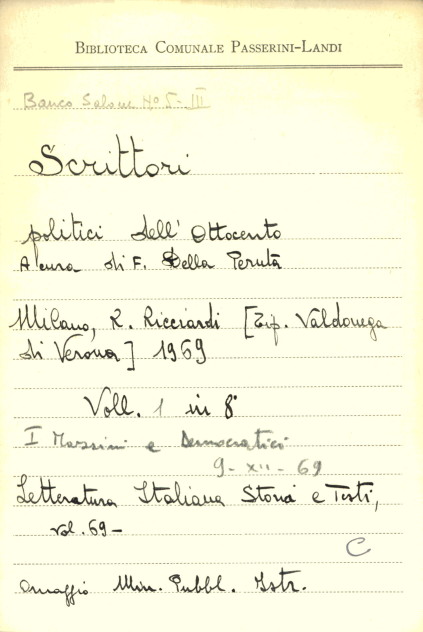 BIBLIOTECA COMUNALE PASSERINI-LANDI
Banco Salone N° 5 - III
Scrittori
politici dell' Ottocento
A cura di F. Della Peruta
Milano, R. Ricciardi [Tip. Valdonega
di Verona] 1969
Voll. 1 in 8°
I Mazzini e Democratici
9 - XII - 69
Letteratura Italiana Storia e Testi,
vol. 69 -
C
Omaggio Min. Pubbl. Istr.